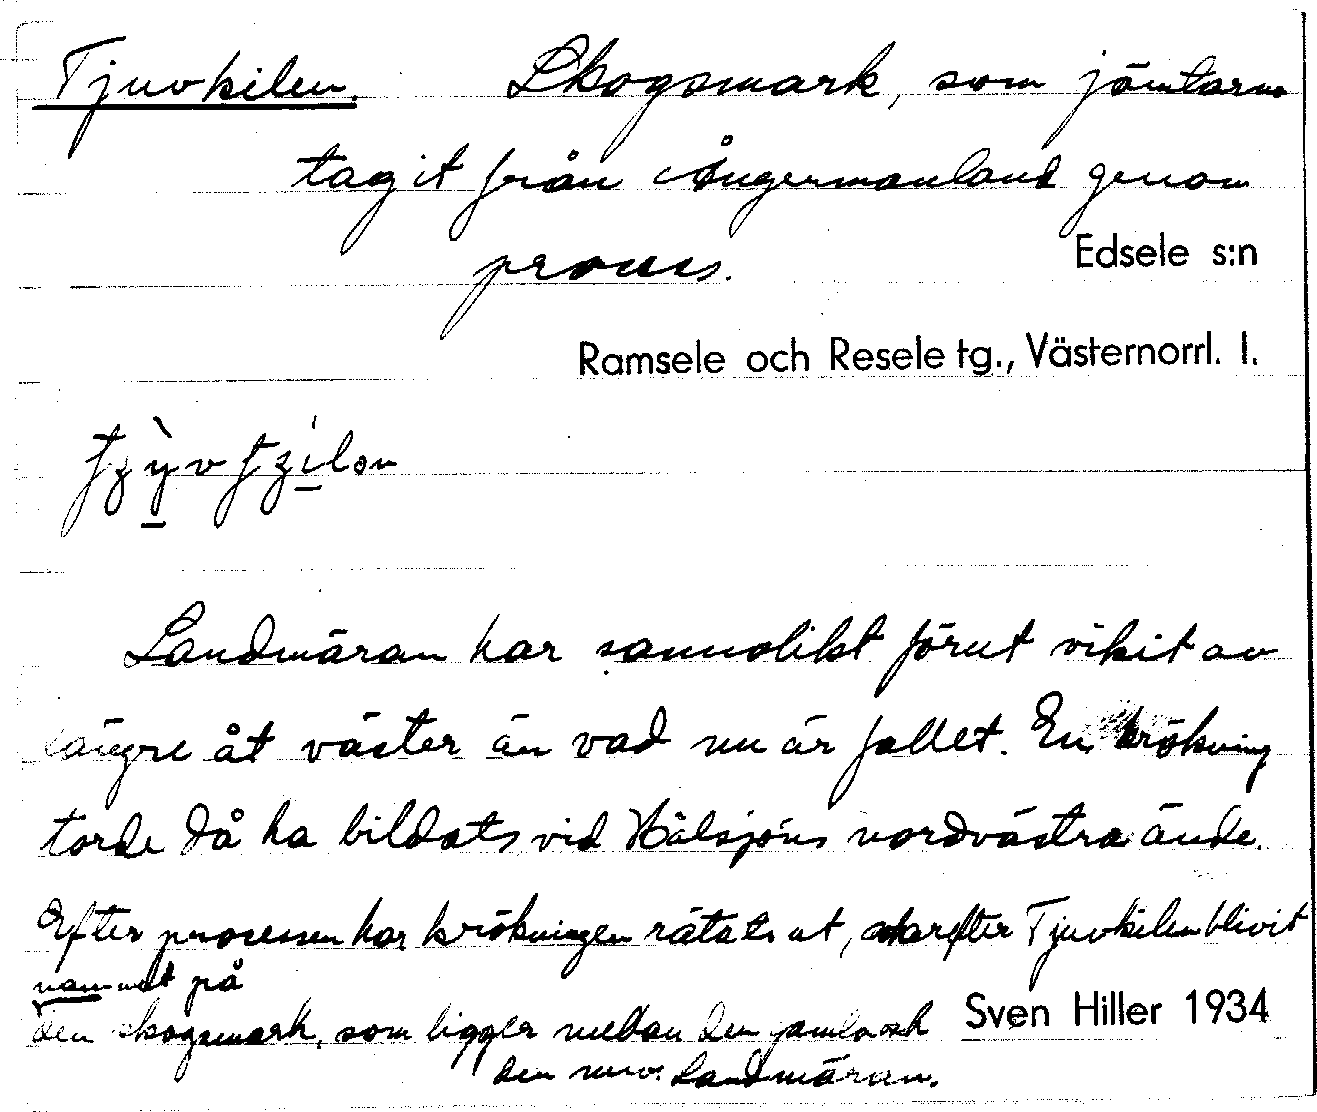 Tjuvkilen. Skogsmark, som jämtarna
tagit från Ångermanland genom
process.
Edsele s:n
Ramsele och Resele tg., Västernorrl. l.
Landmäran har sannolikt förut vikit av
längre åt väster än vad nu är fallet. En krökning
torde då ha bildats vid Hälsjöns nordvästra ände.
Efter processen har krökningen rätats ut, varefter Tjuvkilen blivit
namnet på
den skogsmark, som ligger mellan den gamla och
Sven Hiller 1934
den nuv. Landmäran.